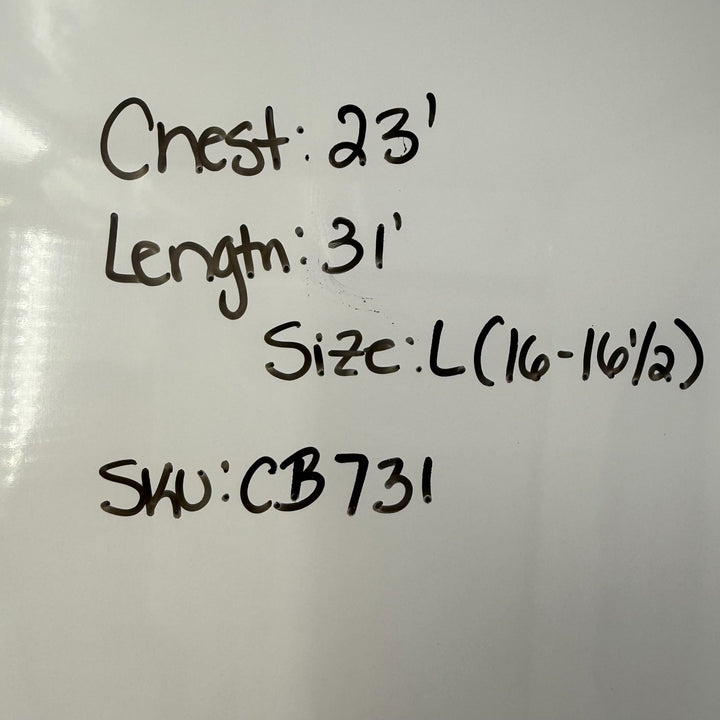 Chest: 23'
Length: 31'
Size: L (16-16 1/2)
SKU: CB731